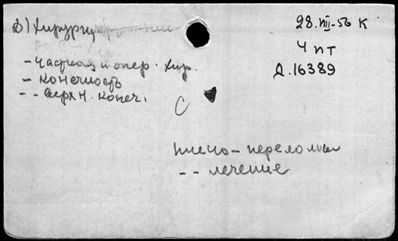 в) Хирургия
28.VIII-56 К
4 пт
Д.16389
- Частная и опер. хир.
- конечность
- - верхн. конеч.
С
плечо - переломы
- - лечение